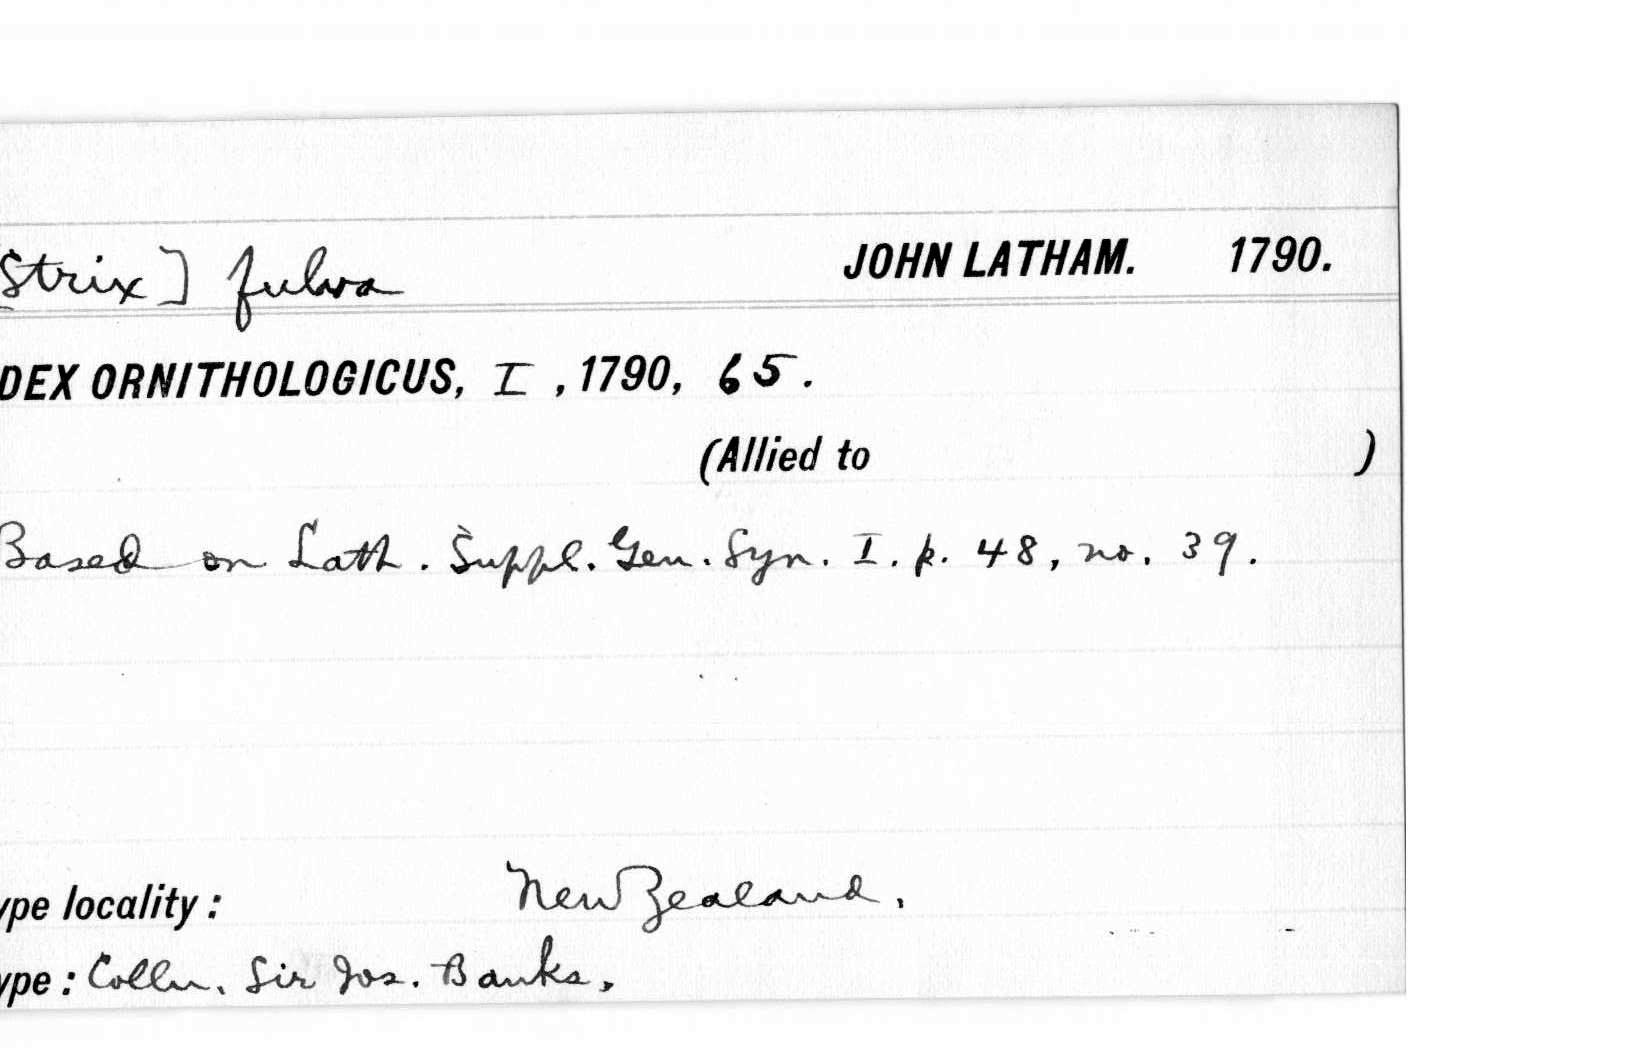 [Strix] fulva JOHN LATHAM. 1790.
DEX ORNITHOLOGICUS, I, 1790, 65.
(Allied to )
Based on Lath. Suppl. Gen. Syn. I. p. 48, no. 39.
ype locality: New Zealand.
ype: Colln. Sir Jos. Banks.